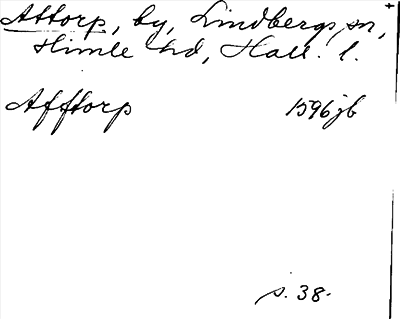 Attorp, by, Lindbergs sn,
Himle hd, Hall. l.
Afftorp 1596 jb
s. 38.